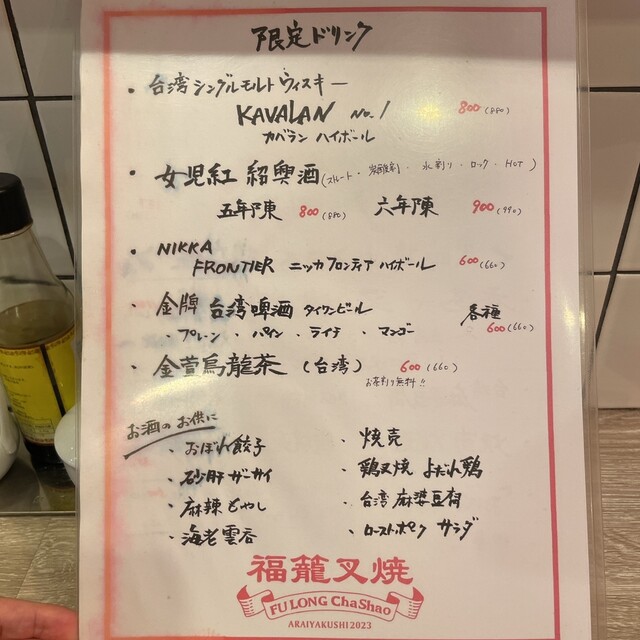 限定ドリンク
・台湾シングルモルトウィスキー
KAVALAN No.1 800(880)
カバラン ハイボール
・女児紅 紹興酒(ストレート・炭酸割・水割り・ロック・HOT)
五年陳 800(880) 六年陳 900(990)
・NIKKA
FRONTIER ニッカフロンティア ハイボール 600(660)
・金牌 台湾啤酒 タイワンビール 各種
・プレーン ・パイン ・ライチ ・マンゴー 600(660)
・金萱烏龍茶 (台湾) 600(660)
お茶割り無料!!
お酒のお供に
・おぼれ餃子
・砂肝ザーサイ
・麻辣もやし
・海老雲呑
・焼売
・鶏叉焼 よだれ鶏
・台湾麻婆豆腐
・ローストポーク サラダ
福龍叉焼
FU LONG ChaShao
ARAIYAKUSHI 2023